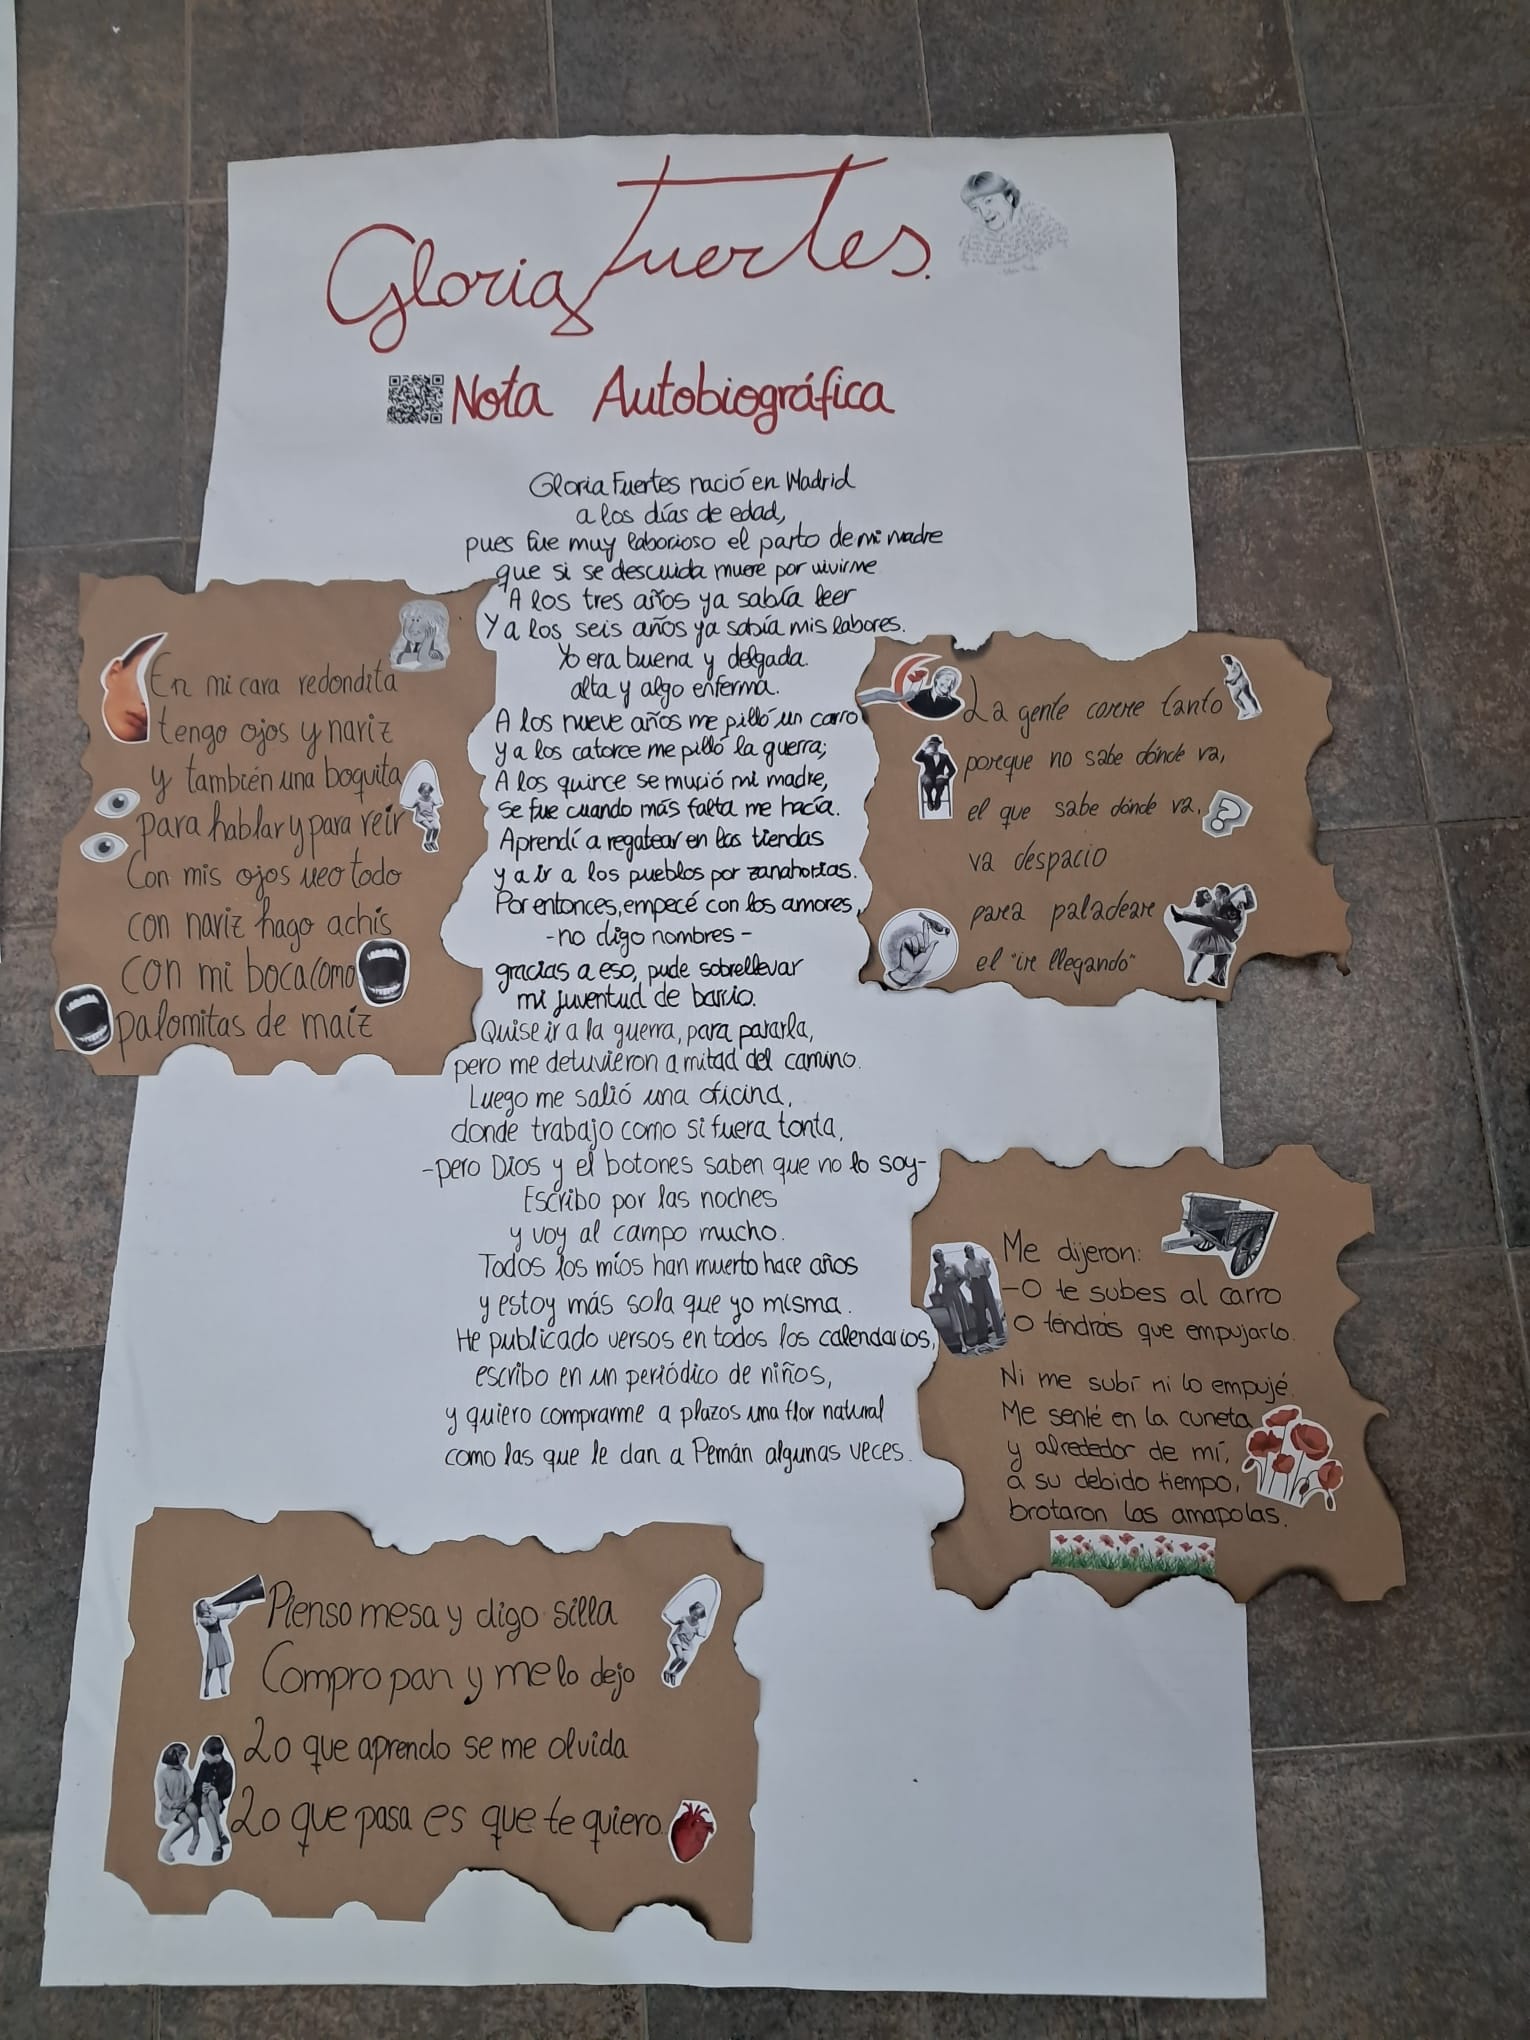 Gloria Fuertes.
Nota Autobiográfica
Gloria Fuertes nació en Madrid
a los días de edad,
pues fue muy laborioso el parto de mi madre
que si se descuida muere por vivirme
A los tres años ya sabía leer
Y a los seis años ya sabía mis labores.
Yo era buena y delgada.
alta y algo enferma.
A los nueve años me pilló un carro
y a los catorce me pilló la guerra;
A los quince se mució mi madre,
se fue cuando más falta me hacía.
Aprendí a regatear en las tiendas
y a ir a los pueblos por zanahorias.
Por entonces, empecé con los amores,
-no digo nombres-
gracias a eso, pude sobrellevar
mi juventud de barrio.
Quise ir a la guerra, para pararla,
pero me detuvieron a mitad del camino.
Luego me salió una oficina,
donde trabajo como si fuera tonta,
-pero Dios y el botones saben que no lo soy-
Escribo por las noches
y voy al campo mucho.
Todos los míos han muerto hace años
y estoy más sola que yo misma.
He publicado versos en todos los calendarios,
escribo en un periódico de niños,
y quiero comprarme a plazos una flor natural
como las que le dan a Pemán algunas veces.
En mi cara redondita
tengo ojos y nariz
y también una boquita
para hablar y para reír
Con mis ojos veo todo
con nariz hago achís
con mi boca como
palomitas de maíz
La gente corre tanto
porque no sabe dónde va,
el que sabe dónde va,
va despacio
para paladear
el "ir llegando"
Me dijeron:
-O te subes al carro
o tendrás que empujarlo.
Ni me subí ni lo empujé.
Me senté en la cuneta
y alrededor de mí,
a su debido tiempo,
brotaron las amapolas.
Pienso mesa y digo silla
Compro pan y me lo dejo
Lo que aprendo se me olvida
Lo que pasa es que te quiero.